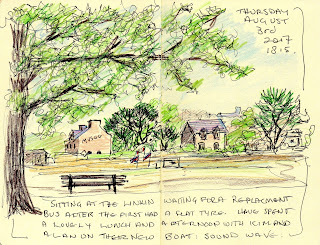 THURSDAY
AUGUST
3rd
2017
1815.
SITTING AT THE LINKIN WAITING FOR A REPLACMENT
BUS AFTER THE FIRST HAD A FLAT TYRE. HAVE SPENT
A LOVELY LUNCH AND AFTERNOON WITH KIM AND
ALAN ON THEIR NEW BOAT: SOUND WAVE.